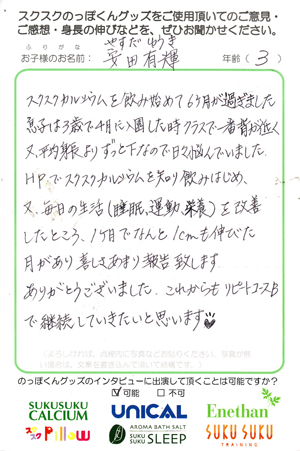 スクスクのっぽくんグッズをご使用頂いてのご意見・
ご感想・身長の伸びなどを、ぜひお聞かせください。
ふりがな やすだゆうき
お子様のお名前: 安田有輝 年齢(3)
スクスクカルシウムを飲み始めて6ヶ月が過ぎました
息子は3歳で4月に入園した時クラスで一番背が低く
又、平均身長よりずっと下なので日々悩んでいました。
HPでスクスクカルシウムを知り飲みはじめ、
又、毎日の生活(睡眠、運動、栄養)を改善
したところ、1ヶ月でなんと1cmも伸びた
月があり喜しさあまり報告致します
ありがとうございました。これからもリピートコースB
で継続していきたいと思います
(よろしければ、点線内に写真などお貼りください。写真が無
い場合は、文章を書き込んで頂いて結構です。)
のっぽくんグッズのインタビューに出演して頂くことは可能ですか?
☑可能 □不可
SUKUSUKU CALCIUM
UNICAL
Enethan
スクスク Pillow
AROMA BATH SALT
SUKU SUKU SLEEP
SUKU SUKU
TRAINING